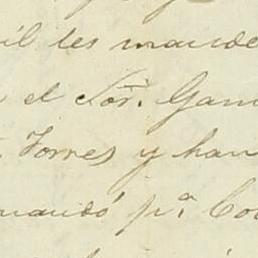 il les mande
el Sor. Gan
Torres y han
mandó pª Co